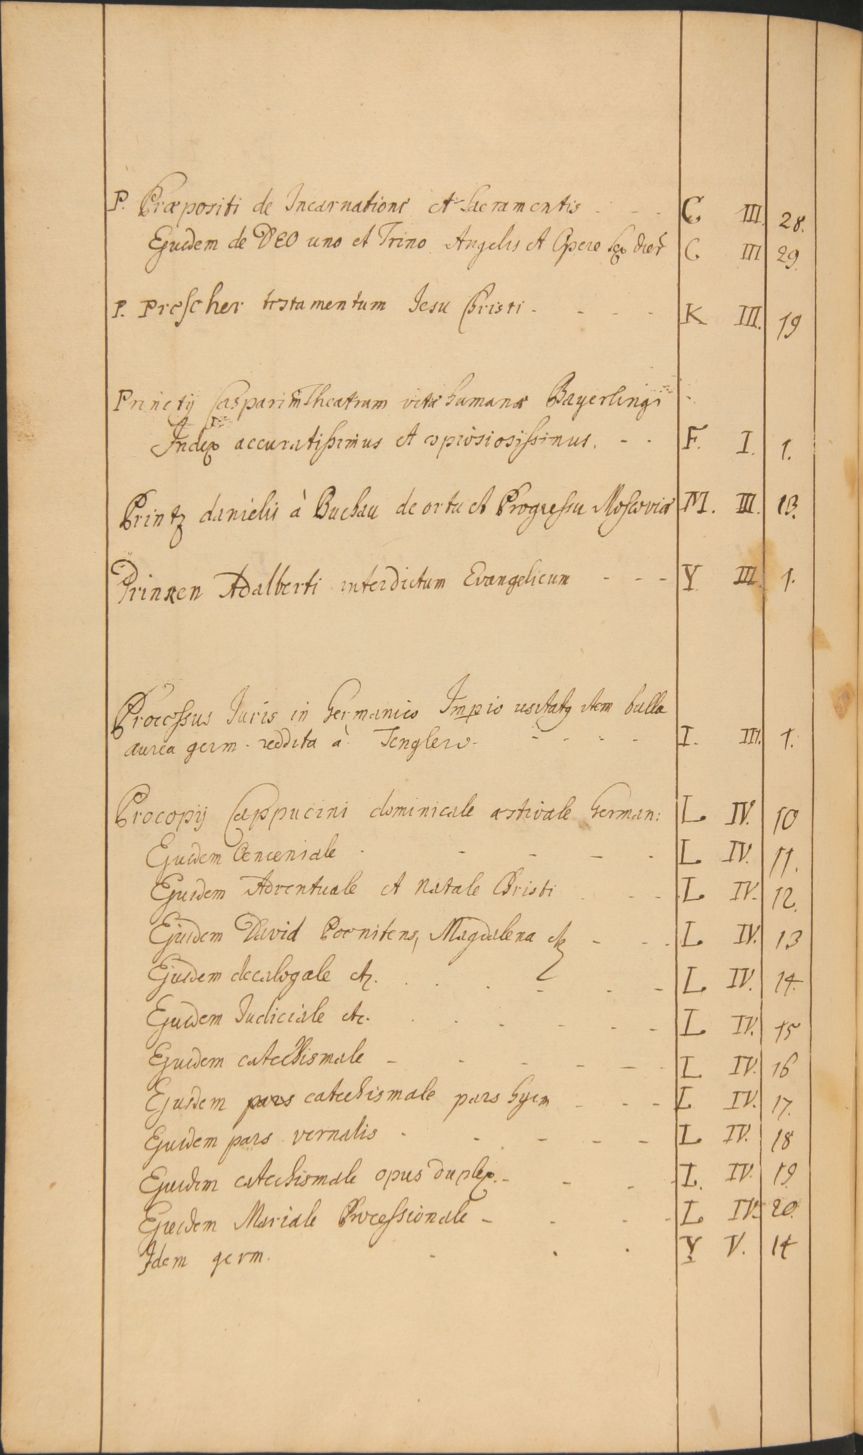 P. Præpositi de Incarnatione et Sacramentis - - C III. 28.
Ejusdem de DEO uno et Trino Angelis et Opere sex dier C III 29
P. Prescher testamentum Jesu Christi - - - - K III. 19
Principij Casparis Theatrum vitæ humanæ Bayerlingi
Index accuratissimus et copiosiosissimus. - - F. I. 1.
Printz danielis à Buchau de ortu et Progressu Moscoviæ M. III. 13.
Prinken Adalberti interdictum Evangelicum - - - Y III. 1.
Processus Juris in Germanico Impio usitatg item bulla
aurea germ. reddita à Tenglero. - - - - I. III. 1.
Procopij Cappucini dominicale æstivale German: L IV. 10
Ejusdem Encæniale - - - - - L IV. 11.
Ejusdem Adventuale et Natale Christi - - - L IV. 12.
Ejusdem David Poenitens, Magdalena etc - - - L IV. 13
Ejusdem decalogale etc. - - - - - L IV. 14
Ejusdem Judiciale etc. - - - - - L IV. 15
Ejusdem catechismale - - - - - - L IV. 16
Ejusdem catechismale pars hyem - - - L IV. 17.
Ejusdem pars vernalis - - - - - L IV. 18
Ejusdem catechismale opus duplex. - - - L. IV. 19
Ejusdem Mariale Processionale - - - - L IV. 20.
Idem germ. - - - Y V. 14